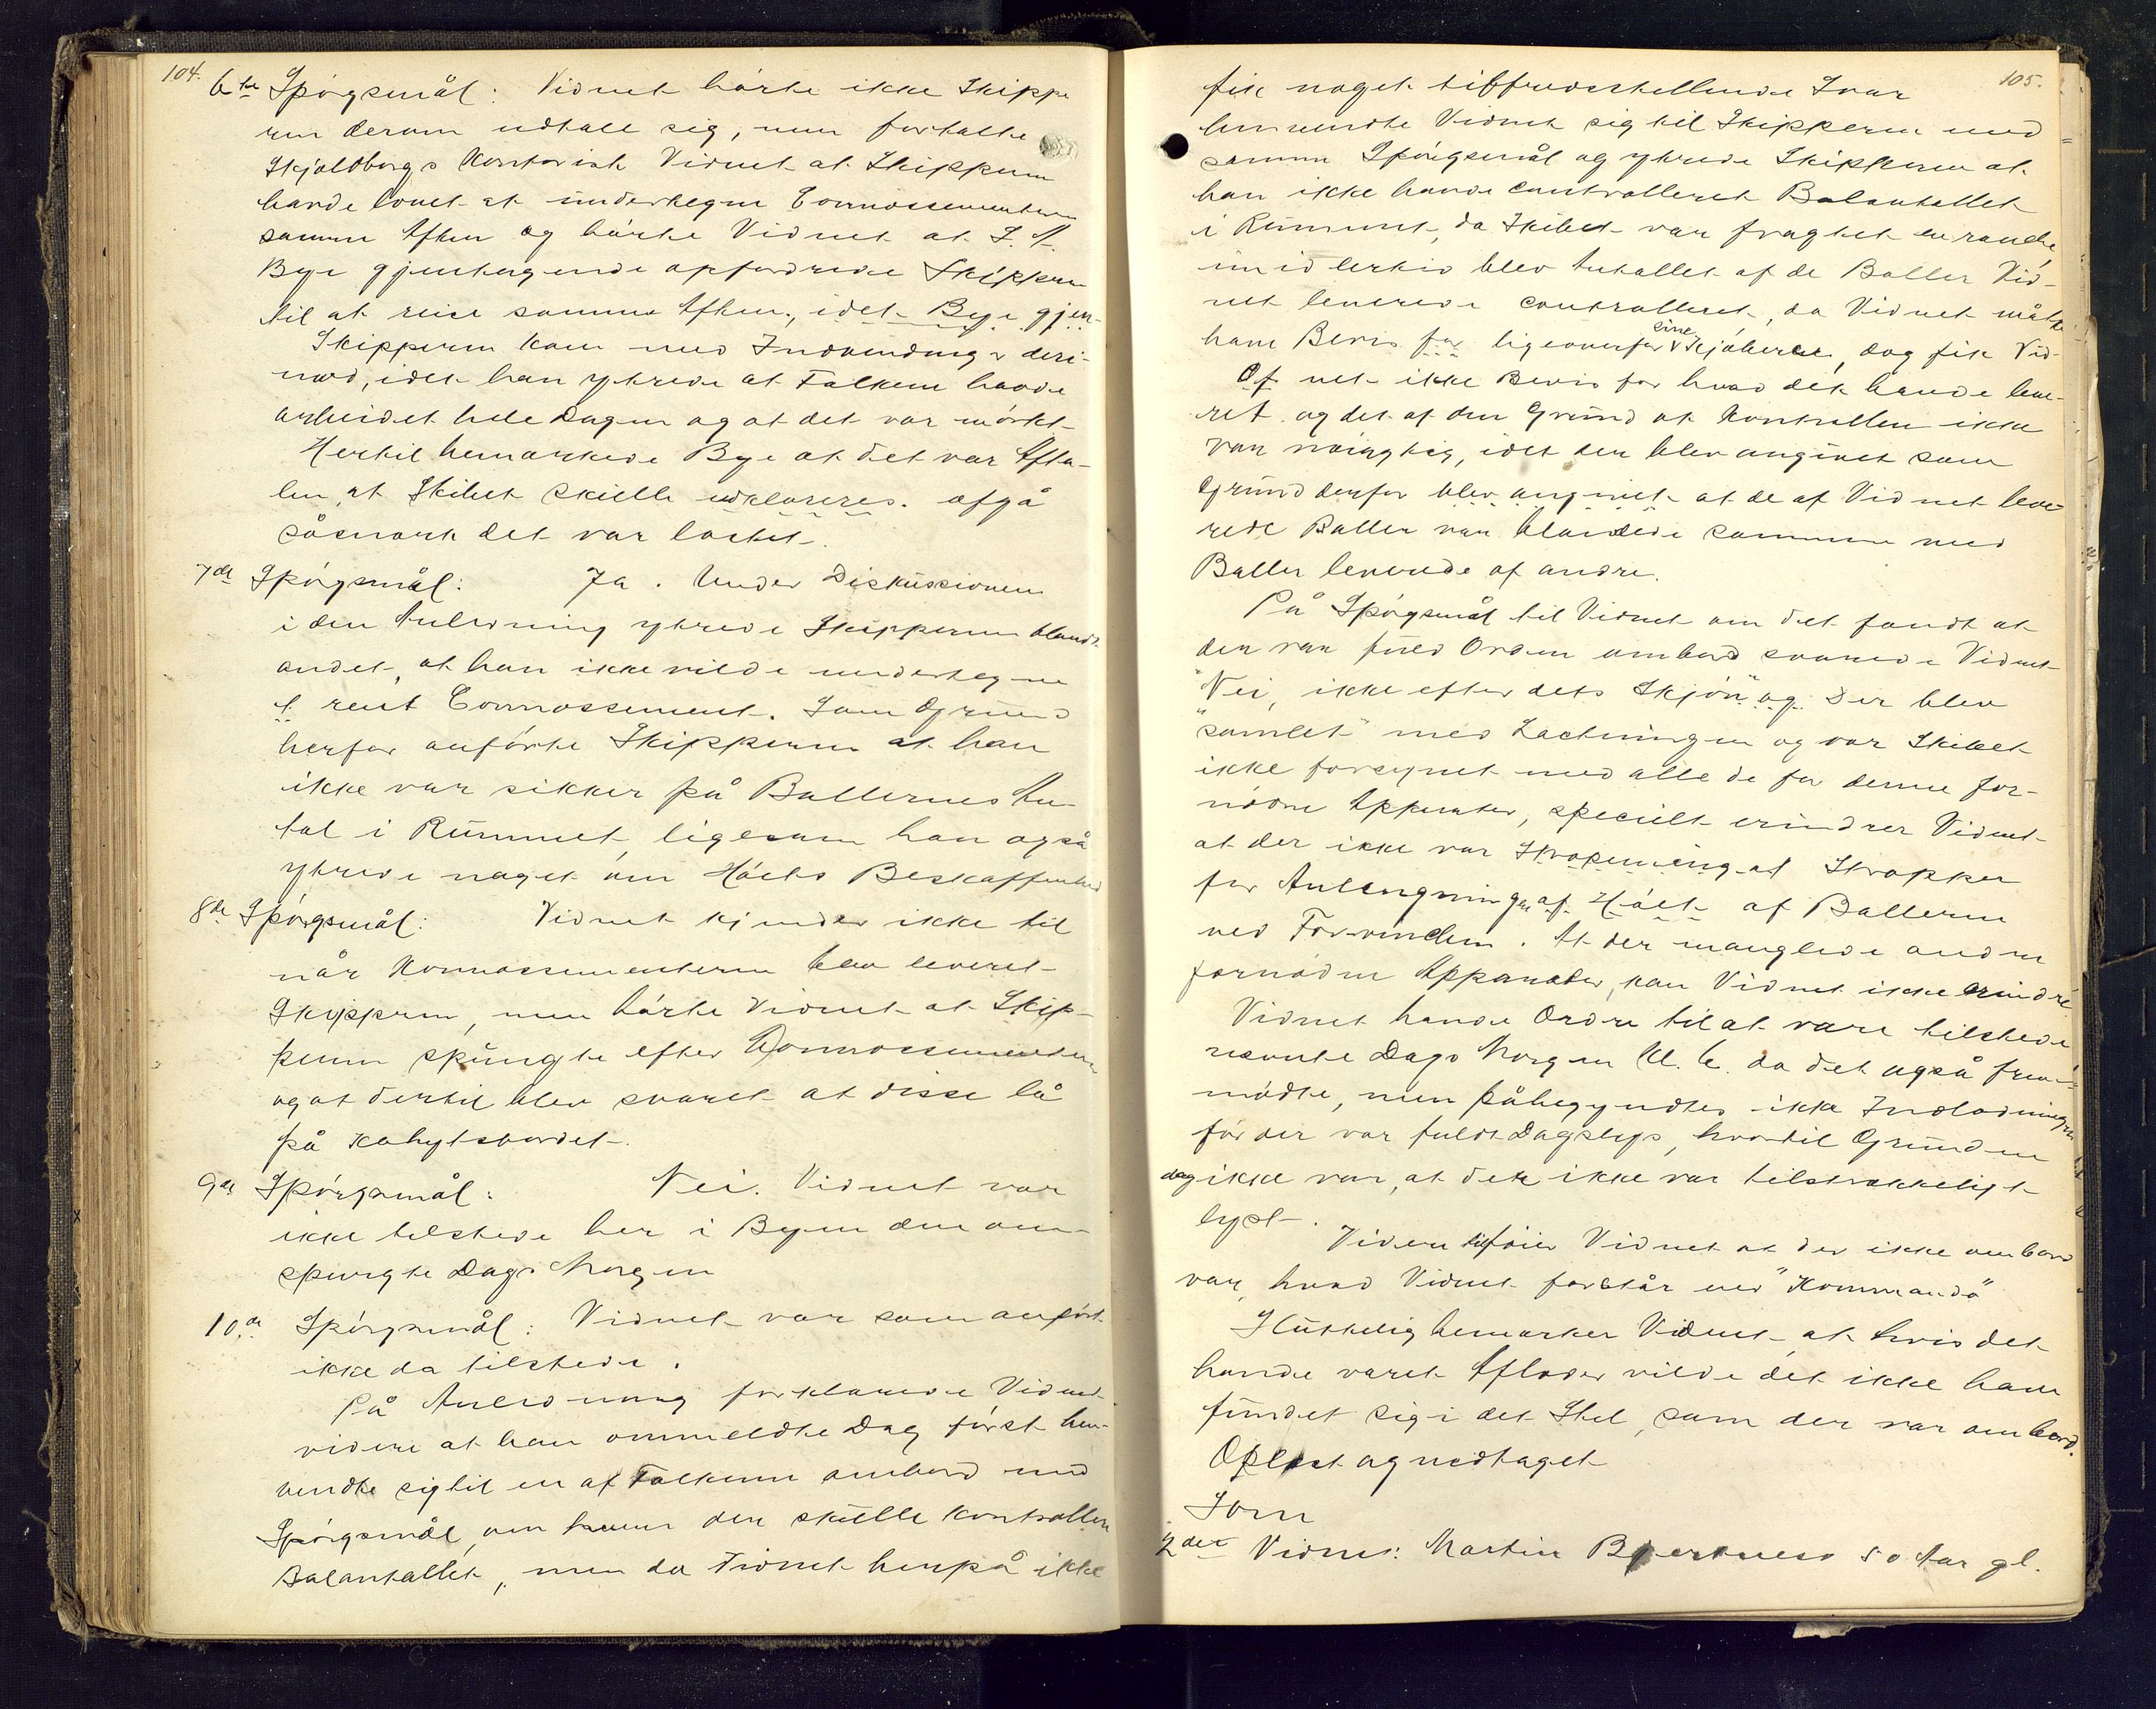 104.
6te Spörgsmål: Vidnet hörte ikke Skippe
ren derom udtale sig, men fortalte
Skjoldborgs Kontorist Vidnet at Skipperen
havde lovet at undertegne Connossementerne
samme Aften og hörte Vidnet at J. A.
Bye gjentagende opfordrede Skipperen
til at reise samme Aften, idet Bye gjen-
Skipperen kom med Indvendinger deri-
mod, idet han ytrede at Folkene havde
arbeidet hele Dagen og at det var mörkt
Hertil bemærkede Bye at det var Afta-
len at Skibet skulle udklareres. afgå
såsnart det var lastet.
7de Spörgsmål: Ja. Under Diskussionen
i den Anledning ytrede Skipperen blandt
andet, at han ikke vilde undertegne
et rent Connossement. Som Grund
herfor anförte Skipperen at han
ikke var sikker på Ballernes An-
tal i Rummet, ligesom han også
ytrede noget om Höets Beskaffenhed
8de Spörgsmål: Vidnet kjender ikke til
når Konnossementerne blev leveret
Skipperen, men hörte Vidnet at Skip-
peren spurgte efter Connossementerne
og at dertil blev svaret at disse lå
på Kahytsbordet.
9de Spörgsmål: Nei. Vidnet var
ikke tilstede her i Byen den om-
spurgte Dags Morgen
10.de Spörgsmål: Vidnet var som anfört
ikke da tilstede.
På Anledning forklarede Vidnet
videre at han ommeldte Dag först hen-
vendte sig til en af Folkene ombord med
Spörgsmål, om hvem der skulle kontrollere
Balantallet, men da Vidnet herpå ikke
105.
fik noget tilfredsstillende Svar
henvendte Vidnet sig til Skipperen med
samme Spörgsmål og ytrede Skipperen at
han ikke havde controlleret Balantallet
i Rummet, da Skibet var fragtet en rouche,
imidlertid blev Antallet af de Baller Vid-
net leverede controlleret, da Vidnet måtte
have Bevis for ligeoverfor sine Kjöbere, dog fik Vid-
Of net ikke Bevis for hvad det havde leve-
ret og det af den Grund at Kontrollen ikke
var nöiagtig, idet der blev angivet som
Grund derfor blev angivet at de af Vidnet leve-
rede Baller var blandede sammen med
Baller leverede af andre.
På Spörgsmål til Vidnet om det fandt at
der var fuld Orden ombord svarede Vidnet
"Nei, ikke efter dets Skjön" og Der blev
"somlet" med Lastningen og var Skibet
ikke forsynet med alle de for denne for-
nödne Apparater, specielt erindrer Vidnet
at der ikke var Stropening at Stropper
for Anlængningen af Höet af Ballerne
ved Forvinchen. At der manglede andre
fornödne Apparater, kan Vidnet ikke erindre
Vidnet havde Ordre til at være tilstede
næste Dags Morgen Kl. 6. da det også frem-
mödte, men påbegyndtes ikke Indladningen
för der var fuldt Dagslys, hvortil Grunden
dog ikke var, at det ikke var tilstrækkeligt
lyst.
Videre tilföier Vidnet at der ikke ombord
var, hvad Vidnet forstår ved "Kommando"
Sluttelig bemærker Vidnet at hvis det
havde været Aflader vilde det ikke have
fundet sig i det Stel, som der var ombord.
Oplæst og vedtaget
Som
2det Vidne: Martin 50 Aar gl.